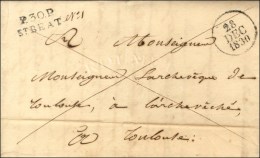 P.30.P.
ST BEAT
28
DEC
1830
A Monseigneur
Monseigneur L'archevêque de
Toulouse, à l'archevêché,
Toulouse.